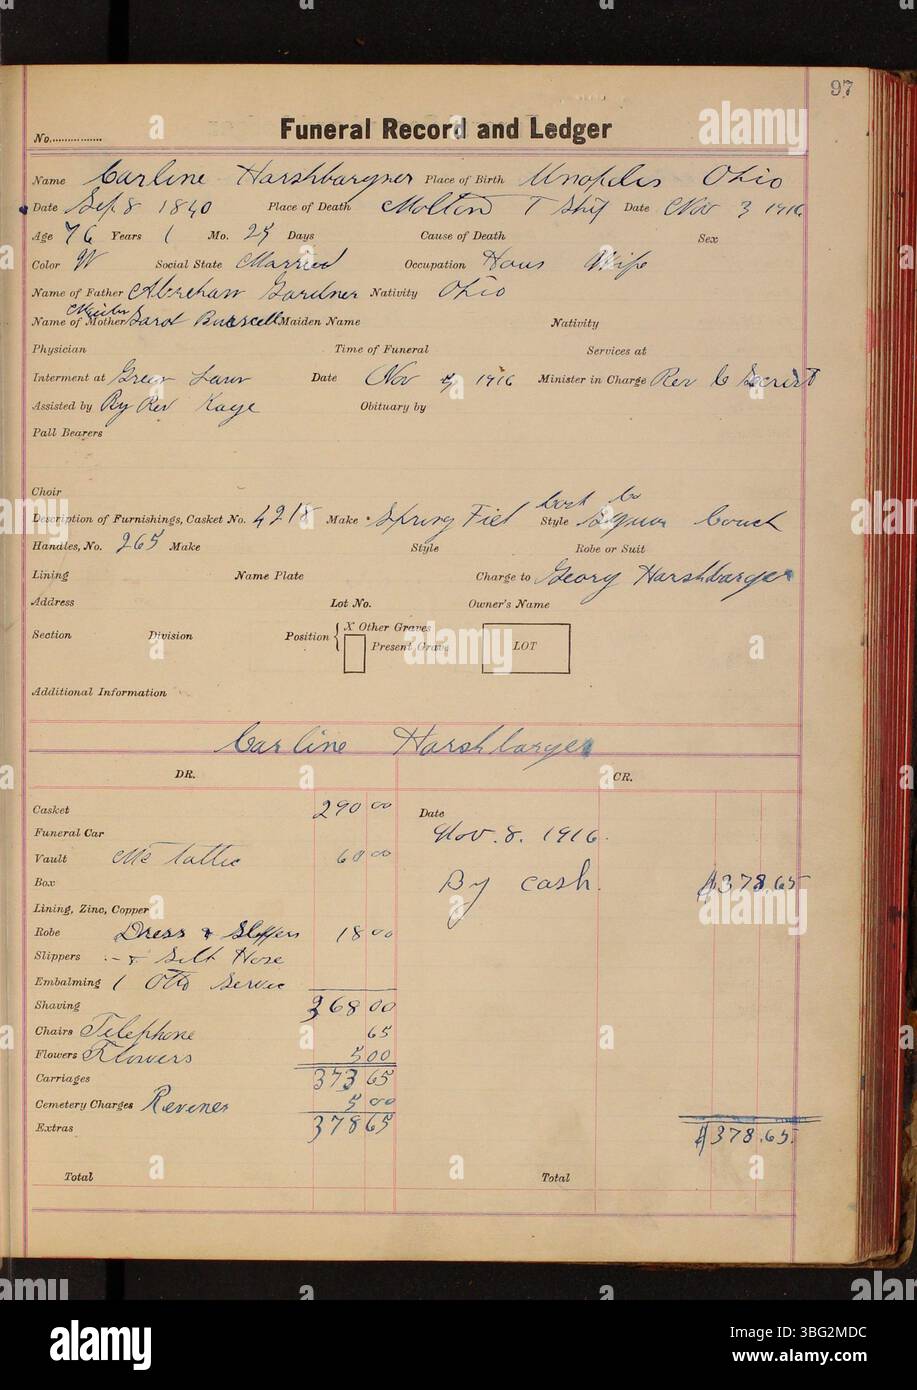 97
No. Funeral Record and Ledger
Name Carline Harshbargner Place of Birth Unopolis Ohio
Date Sep 8 1840 Place of Death Molton T Ship Date Nov 3 1916
Age 76 Years 1 Mo. 25 Days Cause of Death Sex
Color W Social State Married Occupation Hous Wife
Name of Father Abreham Gardner Nativity Ohio
Name of Mother Sarot Maiden Name Nativity
Physician Time of Funeral Services at
Interment at Green Lawn Date Nov 1916 Minister in Charge Rev C
Assisted by By Rev Kaye Obituary by
Pall Bearers
Choir
Description of Furnishings, Casket No. 4218 Make Spring Fiel Style Couch
Handles, No. 265 Make Style Robe or Suit
Lining Name Plate Charge to Georg Harshbarger
Address Lot No. Owner's Name
Section Division Position X Other Graves
Present Grave LOT
Additional Information
Carline Harshbarger
DR. CR.
Casket 290 00 Date
Funeral Car Nov. 8. 1916.
Vault Me tallic 60 00
Box By cash. $378.65
Lining, Zinc, Copper
Robe Dress & Slippers 18 00
Slippers & Silk Hose
Embalming 1 Otto Servic
Shaving 368 00
Chairs Telephone 65
Flowers Flowers 5 00
Carriages 373 65
Cemetery Charges 5 00
Extras 378 65 $378.65.
Total Total
alamy
Image ID: 3BG2MDC
www.alamy.com